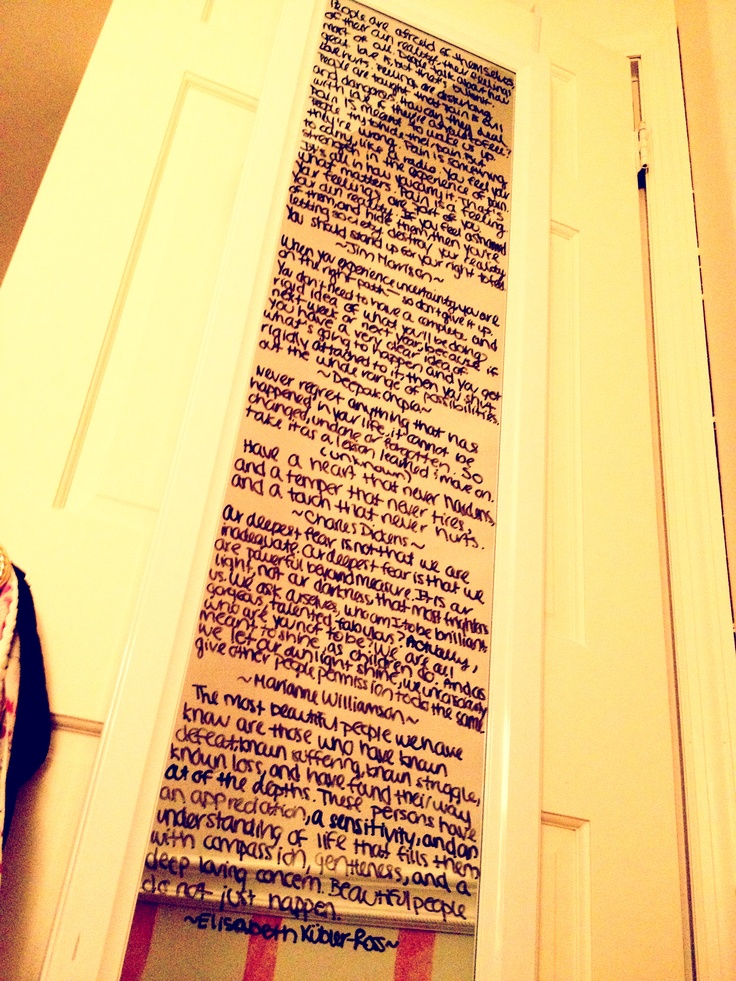 People are afraid of themselves
of their own reality, their feelings
most of all. People talk about how
great love is, but that's
love hurts. Feelings are disturbing.
People are taught that pain is evil
and dangerous. How can they deal
with love if they're afraid to feel?
Pain is meant to wake us up.
People try to hide their pain. But
they're wrong. Pain is something
to carry, like a radio. You feel your
strength in the experience of pain.
It's all in how you carry it. That's
what matters. Pain is a feeling
your feelings are part of you
your own reality. If you feel ashamed
of them, and hide them, then you're
letting society destroy your reality
You should stand up for your right to feel
~Jim Morrison~
When you experience uncertainty, you are
on the right path - so don't give it up.
You don't need to have a complete and
rigid idea of what you'll be doing
next week or next year, because if
you have a very clear idea of
what's going to happen and you get
rigidly attached to it, then you shut
out the whole range of possibilities.
~Deepak Chopra~
Never regret anything that has
happened in your life, it cannot be
changed, undone or forgotten. So
take it as a lesson learned & move on.
(unknown)
Have a heart that never hardens,
and a temper that never tires,
and a touch that never hurts.
~Charles Dickens~
Our deepest fear is not that we are
inadequate. Our deepest fear is that we
are powerful beyond measure. It is our
light, not our darkness, that most frightens
us. We ask ourselves, who am I to be brilliant
gorgeous, talented, fabulous? Actually,
who are you not to be? We are all
meant to shine, as children do. And as
we let our own light shine, we unconsciously
give other people permission to do the same
~Marianne Williamson~
The most beautiful people we have
known are those who have known
defeat, known suffering, known struggle,
known loss, and have found their way
out of the depths. These persons have
an appreciation, a sensitivity, and an
understanding of life that fills them
with compassion, gentleness, and a
deep loving concern. Beautiful people
do not just happen.
~Elisabeth Kübler-Ross~